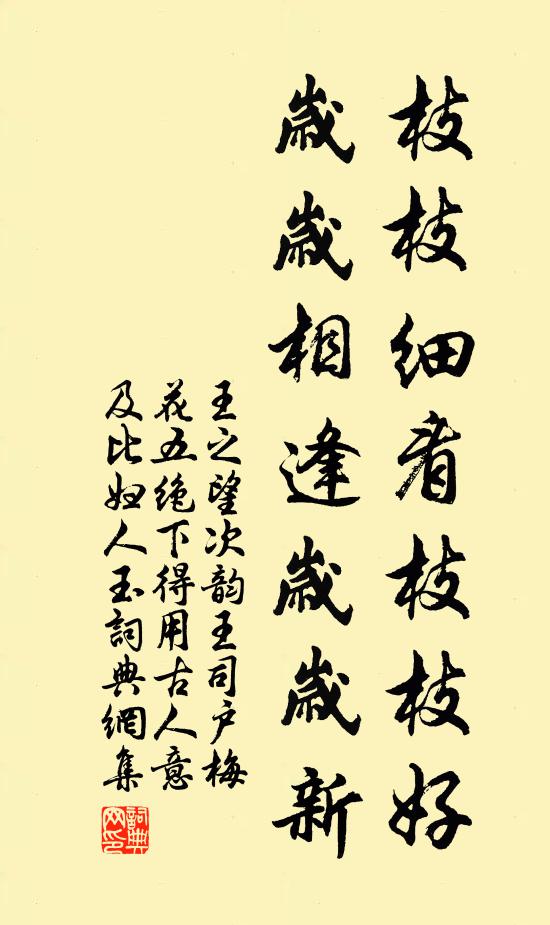 枝枝细看枝枝好
歲歲相逢歲歲新
王之望次韵王司户梅
花五绝下得用古人意
及比妇人玉詞典網集
詞典网印